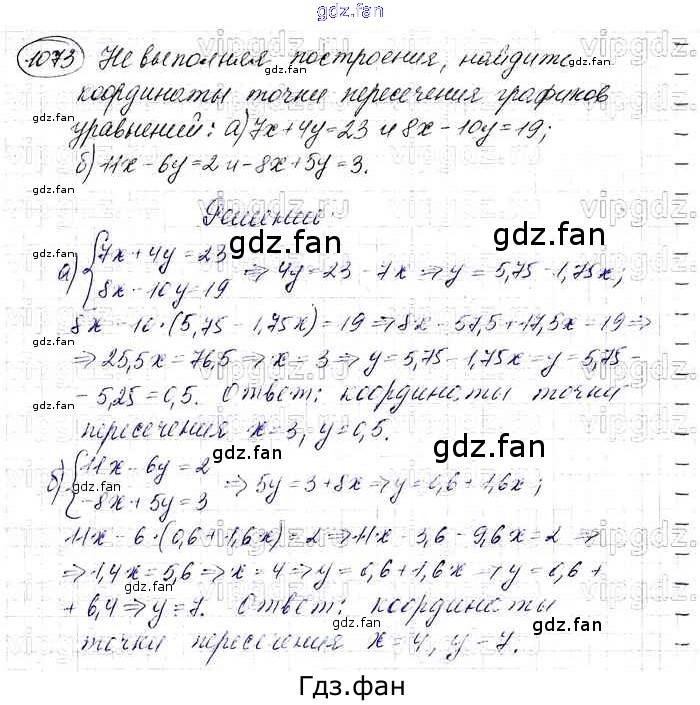 gdz.fan
1073 Не выполняя построения, найдите
координаты точки пересечения графиков
уравнений: а) 7x+4y=23 и 8x-10y=19;
б) 11x-6y=2 и -8x+5y=3.
Решение.
а) {7x+4y=23
8x-10y=19 ⇒ 4y=23-7x ⇒ y=5,75-1,75x;
8x-10·(5,75-1,75x)=19 ⇒ 8x-57,5+17,5x=19 ⇒
⇒ 25,5x=76,5 ⇒ x=3 ⇒ y=5,75-1,75x=y=5,75-
-5,25=0,5. Ответ: координаты точки
пересечения x=3, y=0,5.
б) {11x-6y=2
-8x+5y=3 ⇒ 5y=3+8x ⇒ y=0,6+1,6x;
11x-6·(0,6+1,6x)=2 ⇒ 11x-3,6-9,6x=2 ⇒
⇒ 1,4x=5,6 ⇒ x=4 ⇒ y=0,6+1,6x ⇒ y=0,6+
+6,4 ⇒ y=7. Ответ: координаты
точки пересечения x=4, y=7.
Гдз.фан